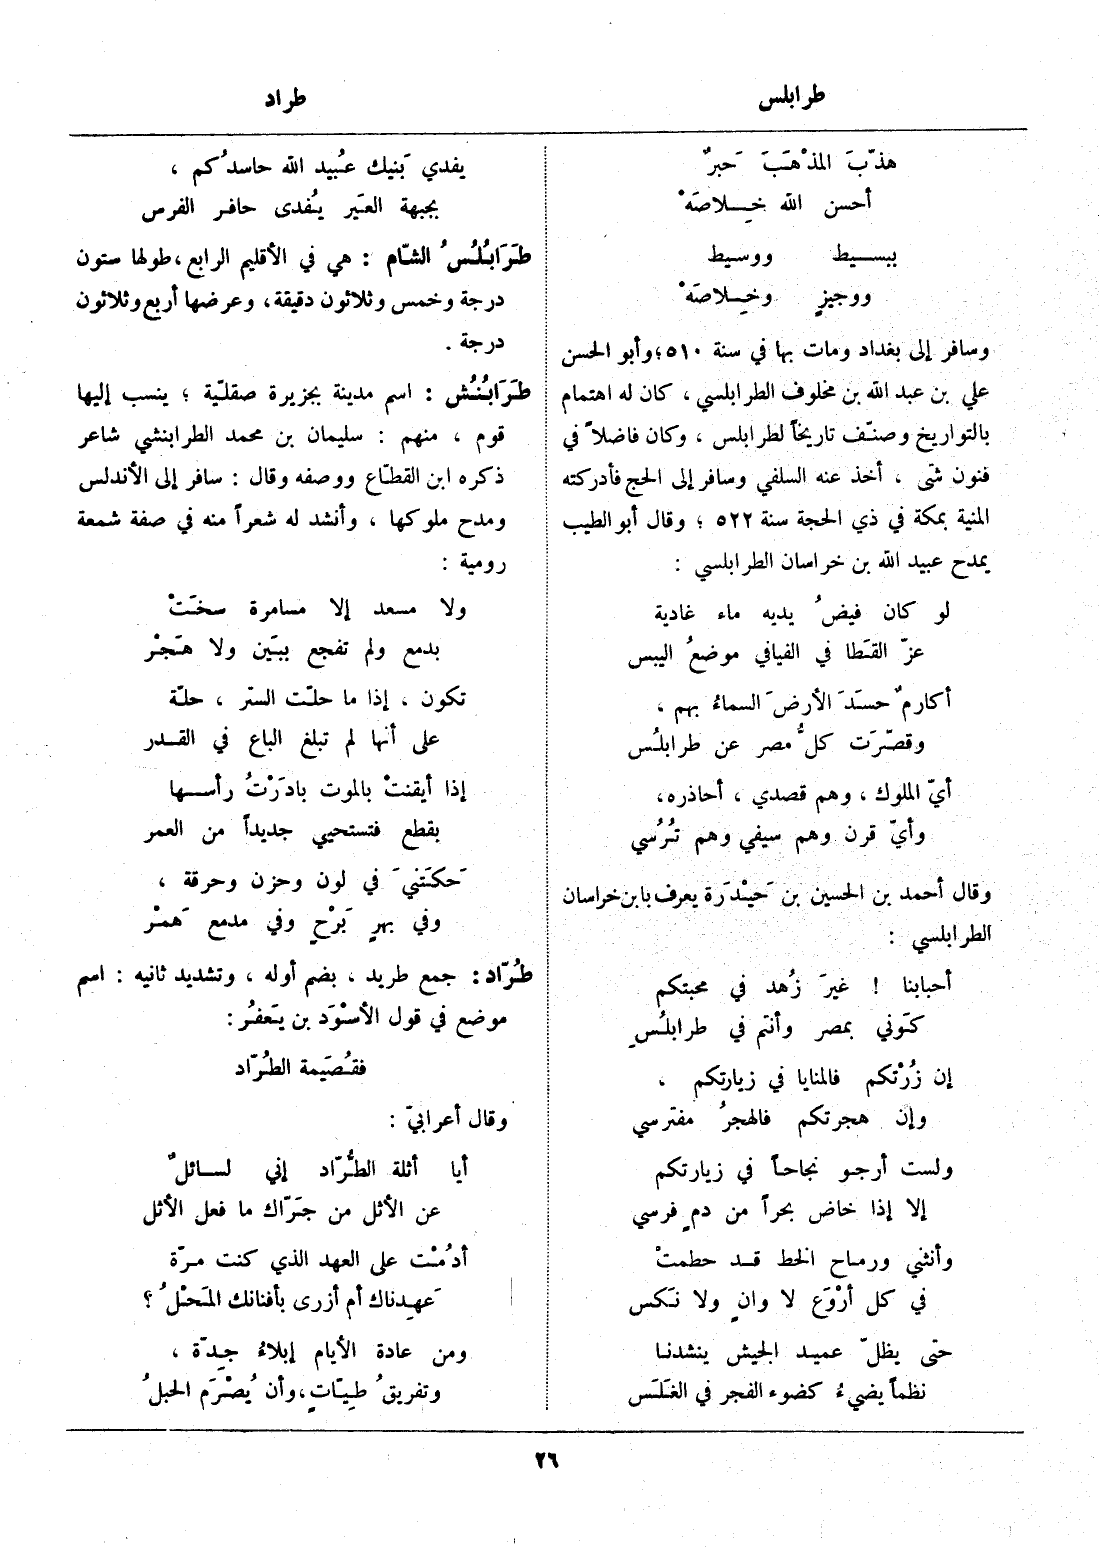 طرابلس
طراد
هذّبَ المذْهَبَ حَبرٌ
أحسن الله خِـلاصَهْ
ببسـيط ووسيط
ووجيزٍ وخِـلاصَهْ
وسافر إلى بغداد ومات بها في سنة ٥١٠؛ وأبو الحسن
علي بن عبد الله بن مخلوف الطرابلسي، كان له اهتمام
بالتواريخ وصنّف تاريخاً لطرابلس، وكان فاضلاً في
فنون شتى، أخذ عنه السلفي وسافر إلى الحج فأدركته
المنية بمكة في ذي الحجة سنة ٥٢٢؛ وقال أبو الطيب
يمدح عبيد الله بن خراسان الطرابلسي:
لو كان فيضُ يديه ماء غادية
عزّ القَطا في الفيافي موضعُ اليبس
أكارمٌ حسَدَ الأرضَ السماءُ بهم،
وقصّرَت كلُّ مصر عن طرابلُس
أيّ الملوك، وهم قصدي، أحاذره،
وأيّ قرن وهم سيفي وهم تُرُسي
وقال أحمد بن الحسين بن حَيْدَرَة يعرف بابن خراسان
الطرابلسي:
أحبابنا ! غيرَ زُهد في محبتكم
كَوني بمصر وأنتم في طرابلُسِ
إن زُرْتكم فالمنايا في زيارتكم،
وإن هجرتكم فالهجرُ مفترسي
ولست أرجو نجاحاً في زيارتكم
إلا إذا خاض بحراً من دمٍ فرسي
وأنثني ورماح الخط قـد حطمتْ
في كل أرْوَع لا وانٍ ولا نَكس
حتى يظلّ عميـد الجيش ينشدنـا
نظماً يضيءُ كضوء الفجر في الغَلَس
يفدي بَنيك عبُيد الله حاسدُكم،
بجبهة العَير يُفدى حافر الفرس
طَرَابُلُسُ الشّام: هي في الأقليم الرابع، طولها ستون
درجة وخمس وثلاثون دقيقة، وعرضها أربع وثلاثون
درجة.
طَرَابُنُش: اسم مدينة بجزيرة صقلّية؛ ينسب إليها
قوم، منهم: سليمان بن محمد الطرابنشي شاعر
ذكره ابن القطّاع ووصفه وقال: سافر إلى الأندلس
ومدح ملوكها، وأنشد له شعراً منه في صفة شمعة
رومية:
ولا مسعد إلا مسامرة سخَتْ
بدمع ولم تفجع ببَين ولا هَجْر
تكون، إذا ما حلّت الستر، حلّة
على أنها لم تبلغ الباع في القـدر
إذا أيقنتْ بالموت بادَرْتُ رأسـها
بقطع فتستحيي جديداً من العمر
حَكَتنيَ في لون وحزن وحرقة،
وفي بهرٍ بَرْحٍ وفي مدمع هَمْر
طُرّاد: جمع طريد، بضم أوله، وتشديد ثانيه: اسم
موضع في قول الأسْوَد بن يَعفُر:
فقُصَيمة الطُرّاد
وقال أعرابيّ:
أيا أثلة الطُّرّاد إني لسـائلٌ
عن الأثل من جَرّاك ما فعل الأثل
أدُمْت على العهد الذي كنت مـرّة
عَهِدناك أم أزرى بأفنانك المَحْلُ؟
ومن عادة الأيام إبلاءُ جِدّة،
وتفريقُ طِيّاتٍ، وأن يُصْرَم الحبلُ
٢٦